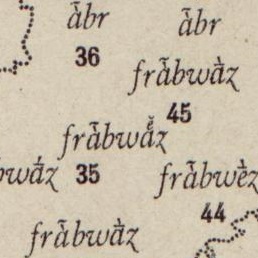 ā̀br
ā̀br
36
frā̀bwā̀z
45
frā̀bwā̊̀z
bwā́z
35
frā̀bwè̄z
44
frā̀bwā̀z